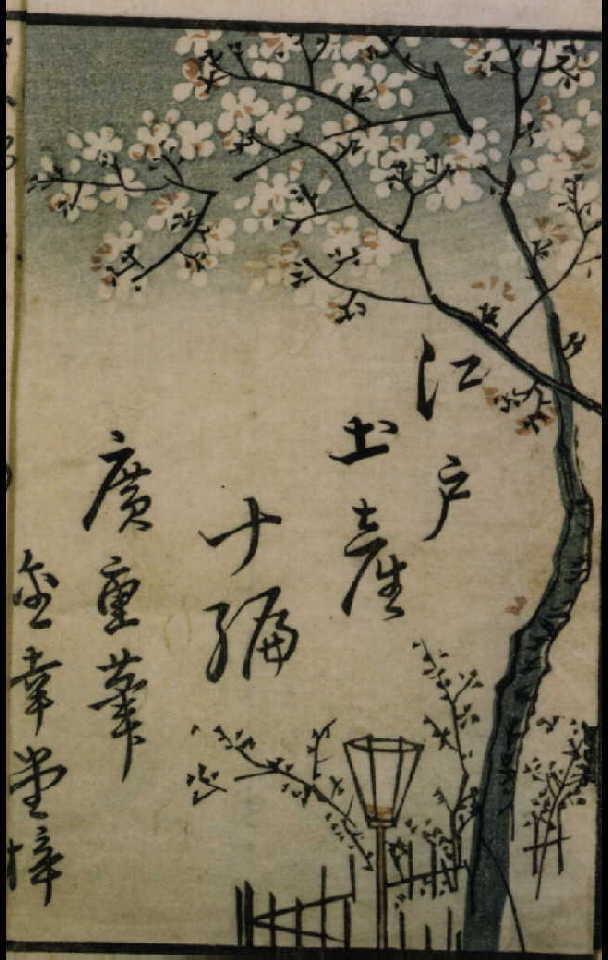 江戸
土産
十編
廣重筆
金幸堂梓